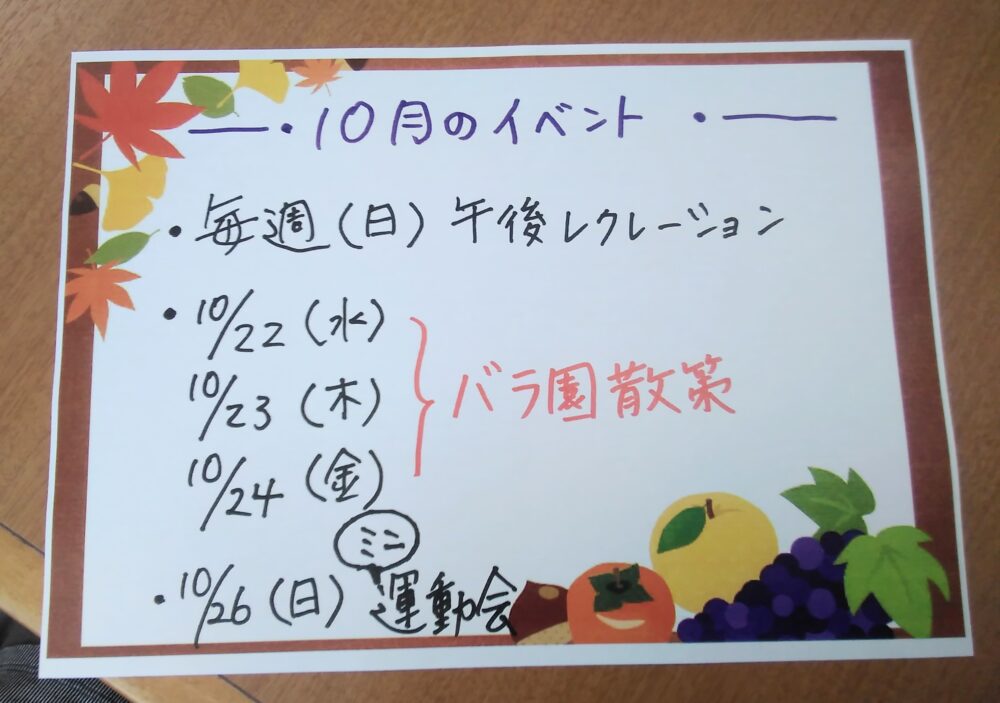 ―・10月のイベント・―
・毎週(日)午後レクレーション
・10/22(水)
10/23(木)
10/24(金)
バラ園散策
・10/26(日)ミニ運動会